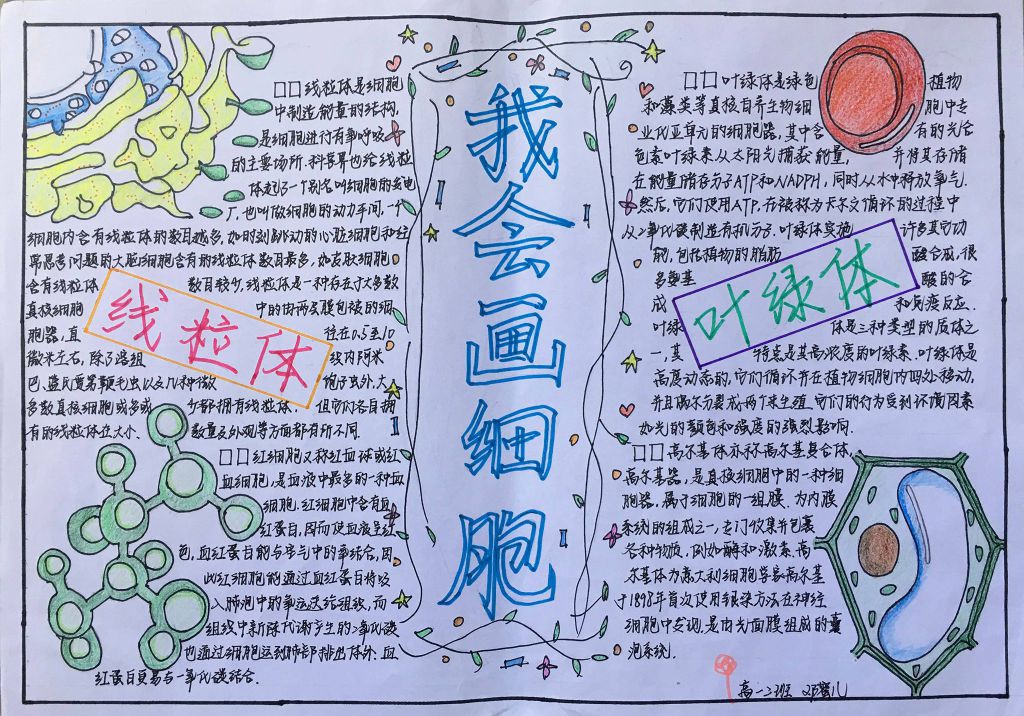 我会画细胞
线粒体
口口线粒体是细胞
中制造能量的结构,
是细胞进行有氧呼吸
的主要场所.科学界也给线粒
体起了一个别名叫细胞的发电
厂,也叫做细胞的动力车间,一个
细胞内含有线粒体的数目越多,如时刻跳动的心脏细胞和经
常思考问题的大脑细胞含有的线粒体数目最多,如皮肤细胞
含有线粒体 数目较少,线粒体是一种存在于大多数
真核细胞 中的由两层膜包被的细
胞器,直 往在0.5至10
微米左右,除了溶组 织内阿米
巴、蓝氏贾第鞭毛虫以及几种微 孢子虫外,大
多数真核细胞或多或 少都拥有线粒体, 但它们各自拥
有的线粒体在大小、 数量及外观等方面都有所不同.
口口红细胞又称红血球或红
血细胞,是血液中最多的一种血
细胞.红细胞中含有血
红蛋白,因而使血液呈红
色,血红蛋白能与空气中的氧结合,因
此红细胞能通过血红蛋白将吸
入肺泡中的氧运送给组织,而
组织中新陈代谢产生的二氧化碳
也通过细胞运到肺部排出体外.血
红蛋白更易与一氧化碳结合.
叶绿体
口口叶绿体是绿色 植物
和藻类等真核自养生物细 胞中专
业化亚单元的细胞器,其中含 有的光合
色素叶绿素从太阳光捕获能量, 并将其存储
在能量储存分子ATP和NADPH,同时从水中释放氧气.
然后,它们使用ATP,在被称为卡尔文循环的过程中
从二氧化碳制造有机分子.叶绿体实施 许多其它功
能,包括植物的脂肪 酸合成,很
多氨基 酸的合
成 和免疫反应.
叶绿 体是三种类型的质体之
一,其 特点是其高浓度的叶绿素.叶绿体是
高度动态的,它们循环并在植物细胞内四处移动,
并且偶尔分裂成两个来生殖.它们的行为受到环境因素
如光的颜色和强度的强烈影响.
口口高尔基体亦称高尔基复合体,
高尔基器,是真核细胞中的一种细
胞器,属于细胞的一组膜.为内膜
系统的组成之一,专门收集并包裹
各种物质,例如酶和激素.高
尔基体为意大利细胞学家高尔基
于1898年首次使用银染方法在神经
细胞中发现.是由光面膜组成的囊
泡系统.
高一二班